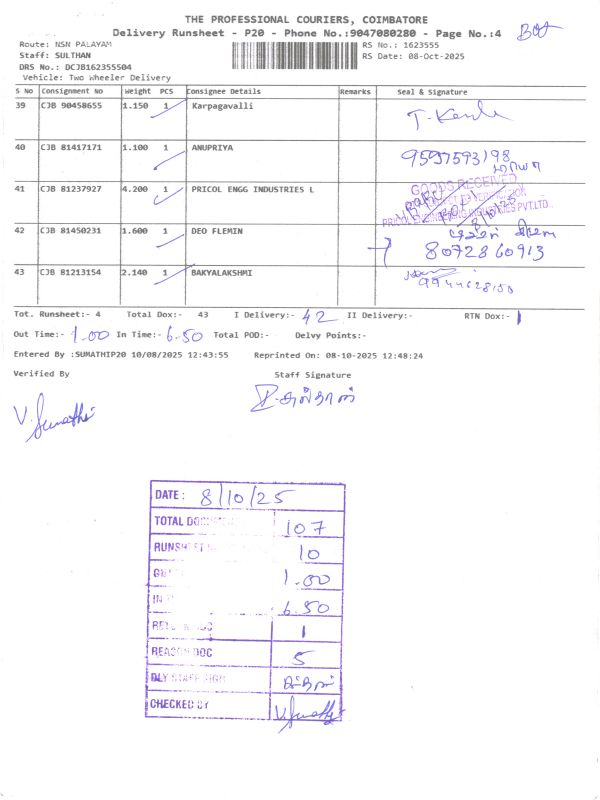 THE PROFESSIONAL COURIERS, COIMBATORE
Delivery Runsheet - P20 - Phone No.:9047080280 - Page No.:4
Route: NSN PALAYAM
RS No.: 1623555
Staff: SULTHAN
RS Date: 08-Oct-2025
DRS No.: DCJB162355504
Vehicle: Two Wheeler Delivery
S No Consignment No Weight PCS Consignee Details Remarks Seal & Signature
39 CJB 90458655 1.150 1 Karpagavalli
40 CJB 81417171 1.100 1 ANUPRIYA 9597593198
41 CJB 81237927 4.200 1 PRICOL ENGG INDUSTRIES L
GOODS RECEIVED
PRICOL ENGINEERING INDUSTRIES PVT.LTD.
42 CJB 81450231 1.600 1 DEO FLEMIN 8072860913
43 CJB 81213154 2.140 1 BAKYALAKSHMI 9944628150
Tot. Runsheet:- 4 Total Dox:- 43 I Delivery:- 42 II Delivery:- RTN Dox:- 1
Out Time:- 1.00 In Time:- 6.50 Total POD:- Delvy Points:-
Entered By :SUMATHIP20 10/08/2025 12:43:55 Reprinted On: 08-10-2025 12:48:24
Verified By Staff Signature
V. Sumathi
DATE : 8/10/25
TOTAL 107
RUNSHEET 10
1.00
IN 6.50
1
REASON DOC 5
DLY STAFF SIGN
CHECKED BY V. Sumathi